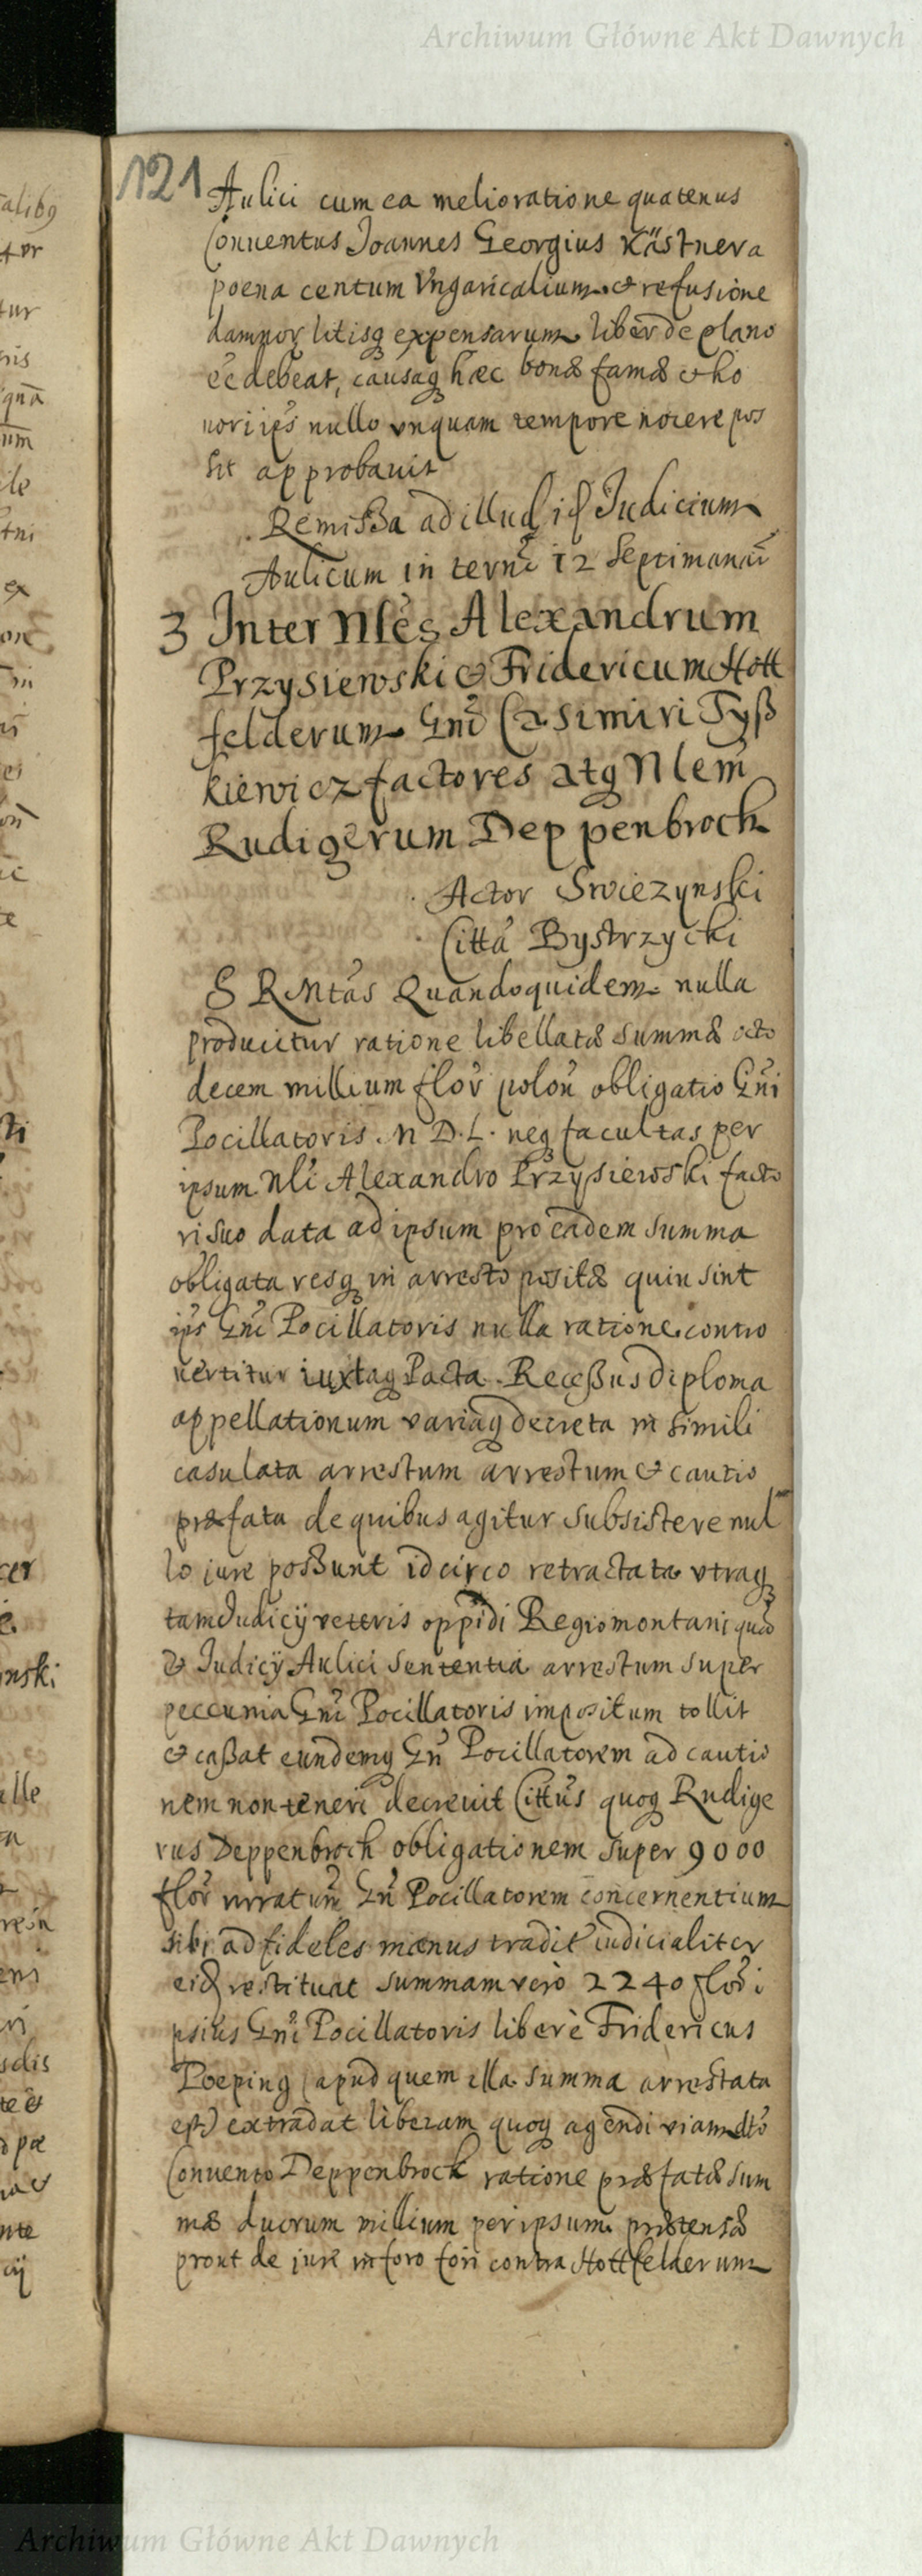 Archiwum Główne Akt Dawnych
121
Aulici cum ea melioratione quatenus
Conuentus Joannes Georgius Kästnera
poena centum Vngaricalium & refusione
damnor litisq expensarum liber de plano
eē debeat, causaq hæc bonæ famæ & ho
nori ips nullo vnquam tempore nocere pos
sit approbauit
Remissa ad illud id Judicium
Aulicum in termī 12 Septimanar
3 Inter Nlēs Alexandrum
Przysiewski & Fridericum Hott
felderum Gnī Casimiri Tyß
kiewicz factores atq Nlem
Rudigerum Deppenbrock
Actor Swiezynski
Citta Bystrzycki
S R Mtas Quandoquidem nulla
producitur ratione libellatæ summæ octo
decem millium flor polon obligatio Gnī
Pocillatoris M D. L. neq facultas per
ipsum Nlī Alexandro Przysiewski facto
ri suo data ad ipsum pro eadem summa
obligata resq in arresto positæ quin sint
ips Gnī Pocillatoris nulla ratione contro
uertitur iuxtaq Pacta Recessus diploma
appellationum variaq decreta in simili
casu lata arrestum arrestum & cautio
præfata de quibus agitur subsistere nul
lo jure possunt idcirco retractata vtraq
tam Judicij veteris oppidi Regiomontani quā
& Judicij Aulici sententia arrestum super
peccunia Gnī Pocillatoris impositum tollit
& cassat eundemq Gn Pocillatorem ad cautio
nem non teneri decreuit Cittus quoq Rudige
rus Deppenbroch obligationem super 9000
flor Gn Pocillatorem concernentium
sibi ad fideles manus tradit iudicialiter
eid restituat summam vero 2240 flor i
psius Gnī Pocillatoris liberè Fridericus
Poeping (apud quem illa summa arrestata
est) extradat liberam quoq agendi viam dto
Conuento Deppenbrock ratione præfatæ sum
mæ duorum millium per ipsum prætensæ
prout de jure in foro fori contra Hottfelderum
Archiwum Główne Akt Dawnych